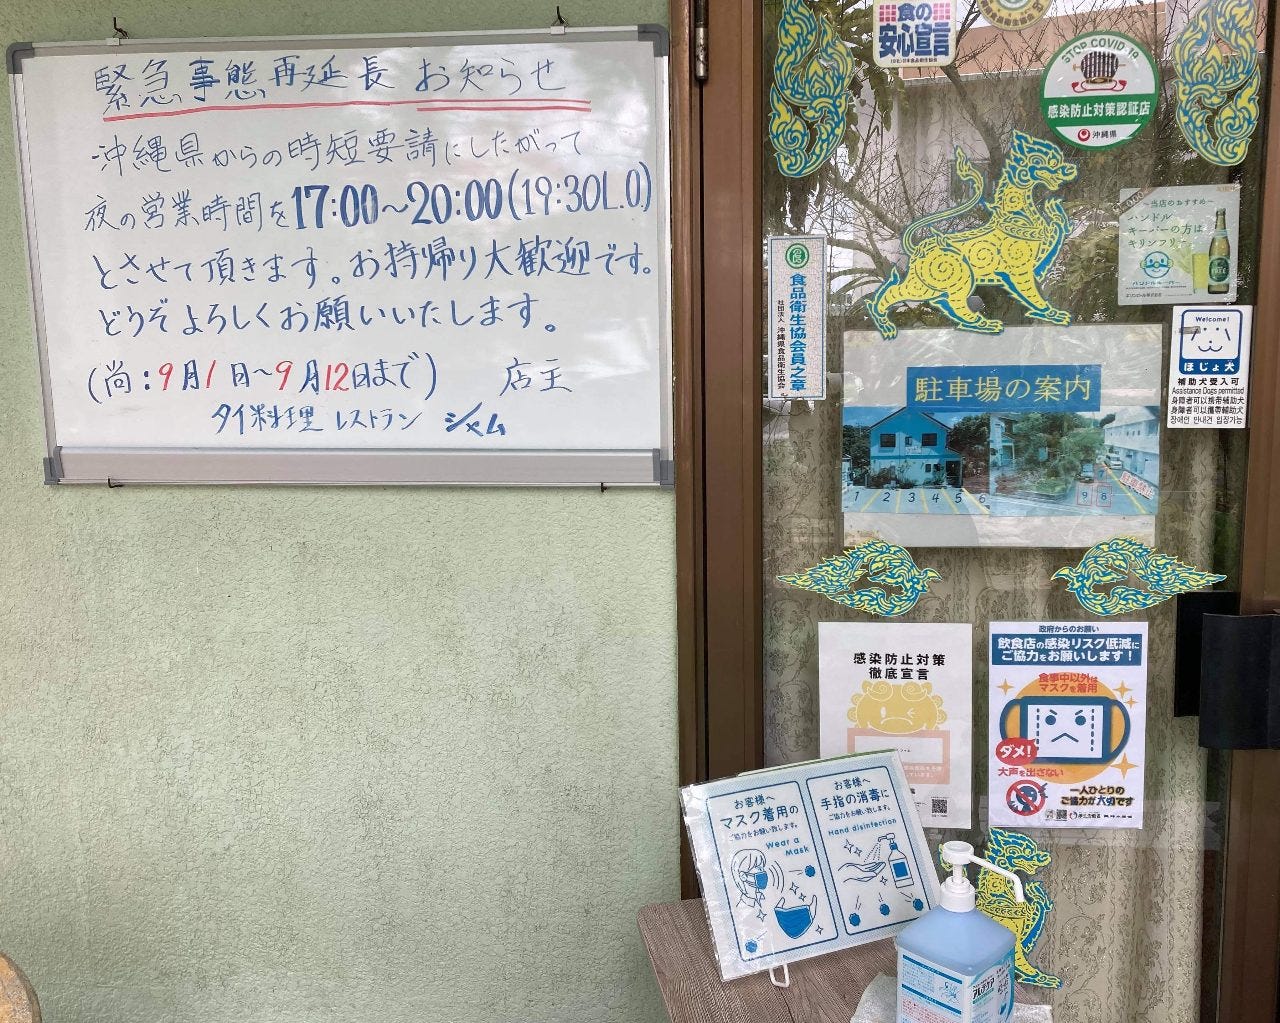 緊急事態再延長 お知らせ
沖縄県からの時短要請にしたがって
夜の営業時間を17:00~20:00(19:30L.O.)
とさせて頂きます。お持帰り大歓迎です。
どうぞよろしくお願いいたします。
(尚:9月1日~9月12日まで) 店主
タイ料理 レストラン シャム
食の
安心宣言
STOP COVID-19
感染防止対策認証店
沖縄県
~当店のおすすめ~
ハンドル
キーパーの方は
キリンフリー
ハンドルキーパー
食品衛生協会員之章
社団法人 沖縄県食品衛生協会
Welcome!
ほじょ犬
補助犬受入可
Assistance Dogs permitted
身障者可以携带辅助犬
身障者可以攜帶輔助犬
장애인 안내견 입장가능
駐車場の案内
1 2 3 4 5 6
9 8
駐車禁止
感染防止対策
徹底宣言
政府からのお願い
飲食店の感染リスク低減に
ご協力をお願いします!
食事中以外は
マスクを着用
ダメ!
大声を出さない
一人ひとりの
ご協力が大切です
お客様へ
マスク着用の
ご協力をお願い致します。
Wear a
Mask
お客様へ
手指の消毒に
ご協力をお願い致します。
Hand disinfection